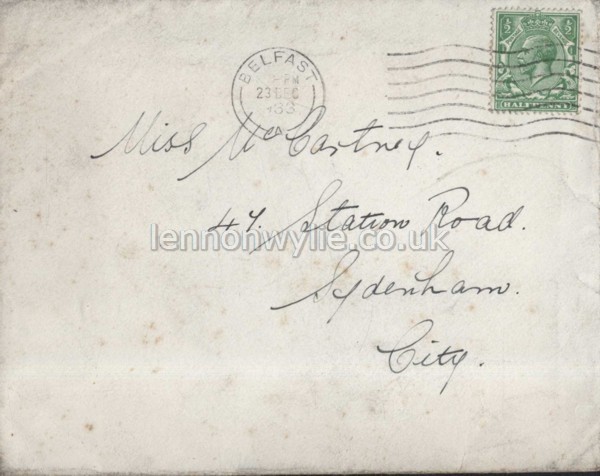 ½ ½
HALFPENNY
BELFAST
PM
23 DEC
33
A
Miss McCartney.
47. Station Road.
lennonwylie.co.uk
Sydenham.
City.